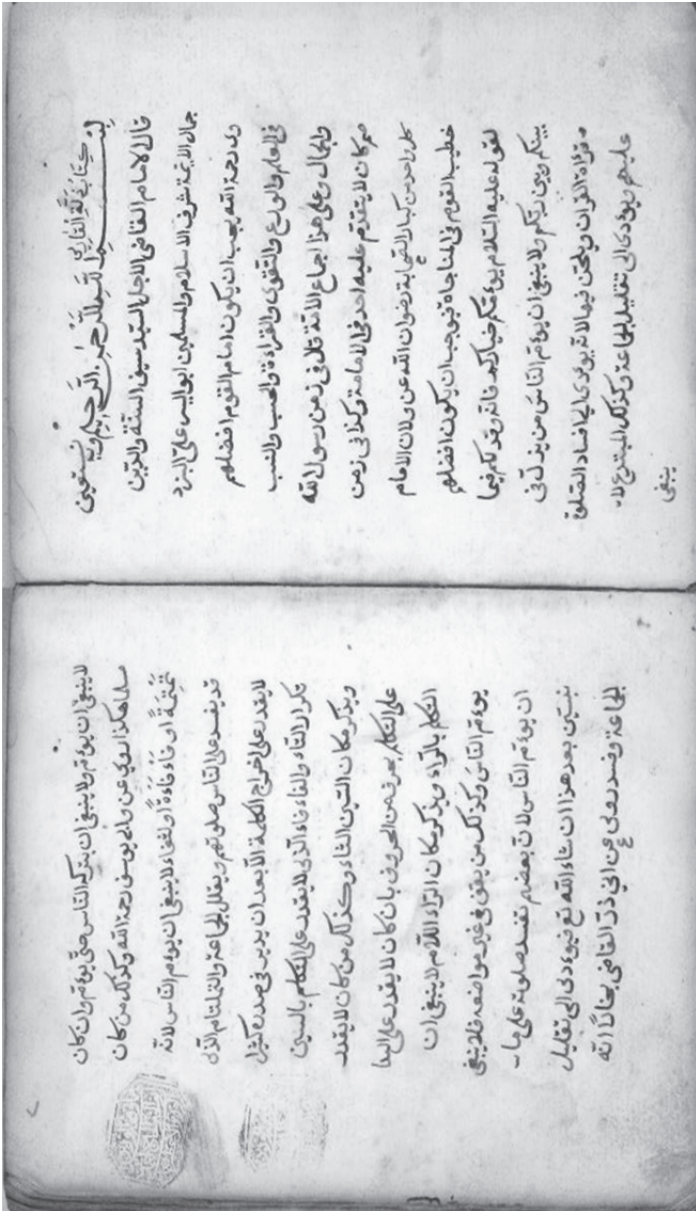 كتاب زلة القارئ
بسم الله الرحمن الرحيم وبه نستعين
قال الامام القاضي الاجل السيد سيف السنة والدين
جمال الائمة شرف الاسلام والمسلمين ابو اليسر على البزد
وى رحمة الله يجب ان يكون امام القوم افضلهم
في العلم والورع والتقوى والقراءة والحسب والنسب
والجمال وعلى هذا اجماع الامة قال في زمن رسول الله
صم كان لا يتقدم عليه احد في الامامة وكذا في زمن
كل واحد من كبار الصحابة رضوان الله عن ولان الامام
خطيب القوم في المناجاة فيوجب ان يكون افضلهم
لقوله عليه السلام يؤمكم خياركم فانه وفدكم فيما
بينكم وبين ربكم ولا ينبغي ان يؤم الناس من يزل في
قراءة القران ويلحن فيها لانه يؤدى الى افساد الصلوة
عليهم ويؤدى الى تقليل الجماعة وكذلك المبتدع لا
ينبغي
لا ينبغي ان يؤم ولا ينبغي ان يتركه الناس حتى يؤم وان كان
مسلما هكذا روي عن ابى يوسف رحمة الله وكذلك من كان
تمتمة او فاءفاءة او لثغاء لا ينبغي ان يؤم الناس لانه
قد يفسد على الناس صلوتهم ويقلل الجماعة والتمتام الذى
لا يقدر على اخراج الكلمة الا بعد ان يدير في صدره كثير
تكرار التاء والفاءفاء الذى لا يقدر على التكلم بالسين
ويذكر مكان السين الثاء وكذلك من كان لا يقدر
على التكلم بحرف من الحروف بان كان لا يقدر على
التكلم بالراء ويذكر مكان الراء اللام لا ينبغي ان
يؤم الناس وكذلك من يقف في غير مواضعه فلا ينبغي
ان يؤم الناس لان بعضهم تفسد صلوته على ما
نبين بعد هذا ان شاء الله تع فيؤدى الى تقليل
الجماعة وقد روي عن ابي ذر القاضي بخارا انه